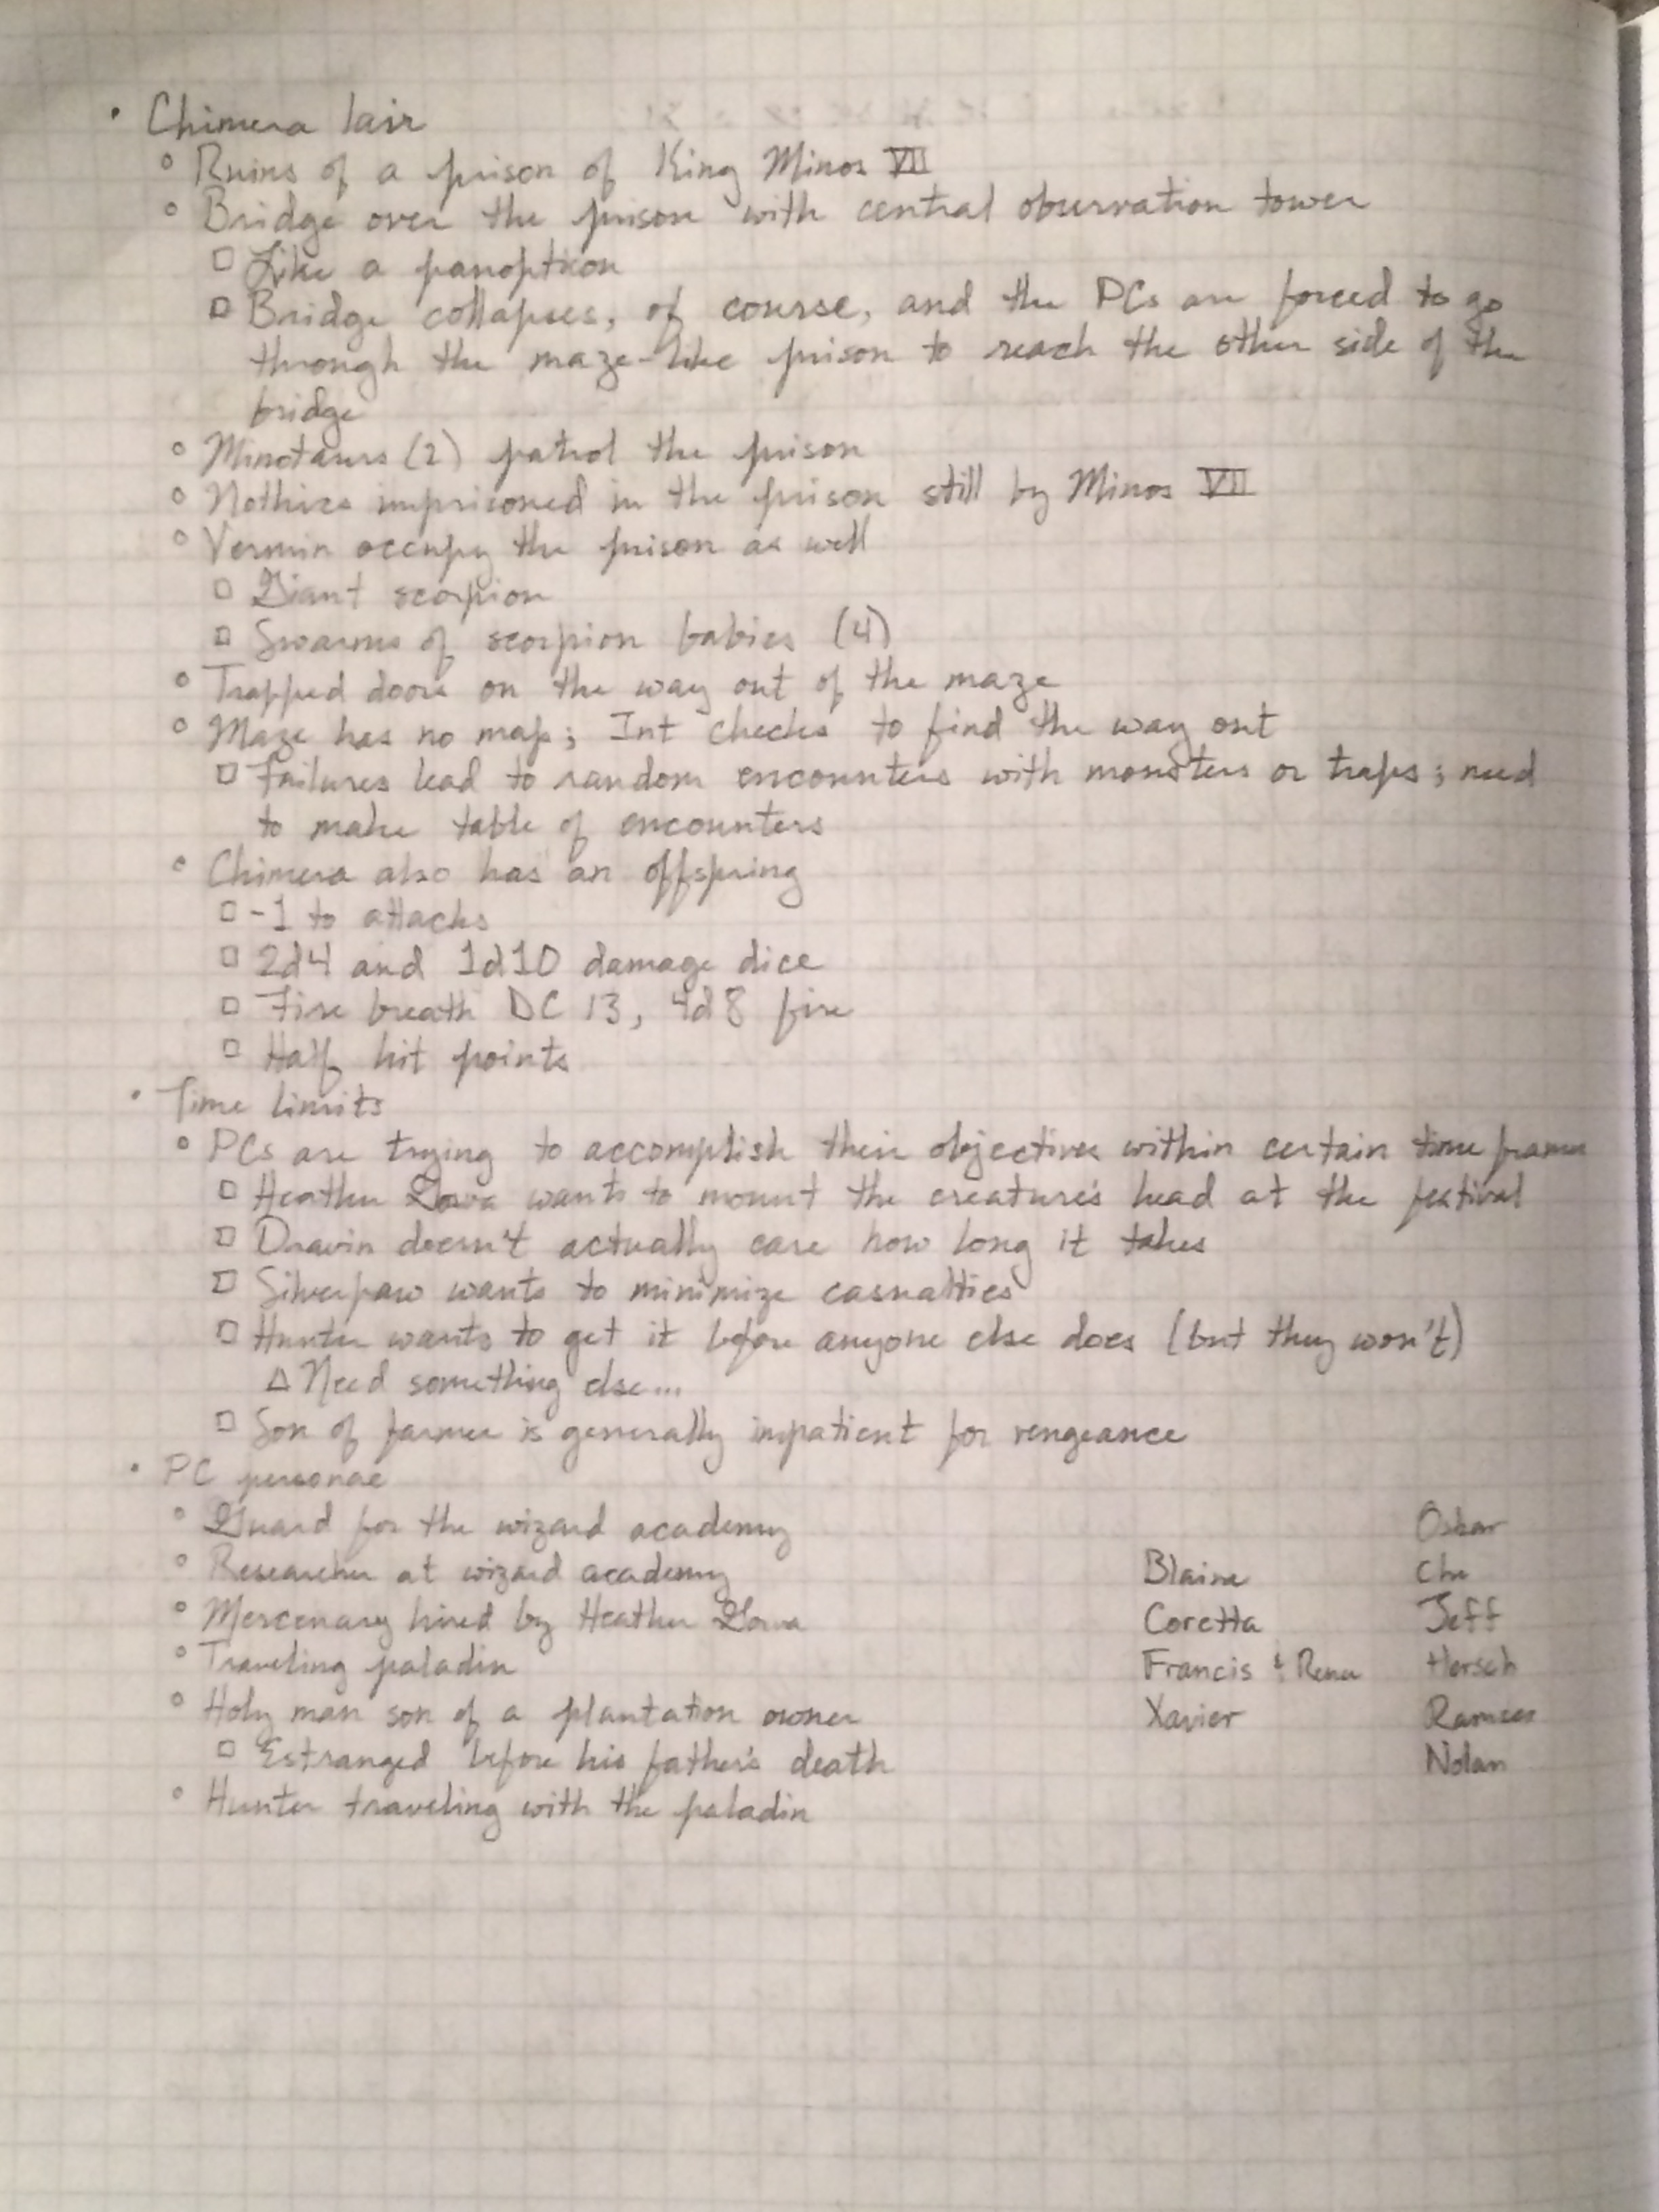 • Chimera lair
○ Ruins of a prison of King Minos VII
○ Bridge over the prison with central observation tower
□ Like a panopticon
□ Bridge collapses, of course, and the PCs are forced to go
through the maze-like prison to reach the other side of the
bridge
○ Minotaurs (2) patrol the prison
○ Nothics imprisoned in the prison still by Minos VII
○ Vermin occupy the prison as well
□ Giant scorpion
□ Swarms of scorpion babies (4)
○ Trapped doors on the way out of the maze
○ Maze has no map; Int checks to find the way out
□ Failures lead to random encounters with monsters or traps; need
to make table of encounters
○ Chimera also has an offspring
□ -1 to attacks
□ 2d4 and 1d10 damage dice
□ Fire breath DC 13, 4d8 fire
□ Half hit points
• Time limits
○ PCs are trying to accomplish their objectives within certain time frames
□ Heather wants to mount the creature's head at the festival
□ Dravin doesn't actually care how long it takes
□ Silverpaw wants to minimize casualties
□ Hunter wants to get it before anyone else does (but they won't)
△ Need something else...
□ Son of farmer is generally impatient for vengeance
• PC personae
○ Guard for the wizard academy Oskar
○ Researcher at wizard academy Blaine Che
○ Mercenary hired by Heather Coretta Jeff
○ Traveling paladin Francis & Hersch
○ Holy man son of a plantation owner Xavier Ramses
□ Estranged before his father's death Nolan
○ Hunter traveling with the paladin